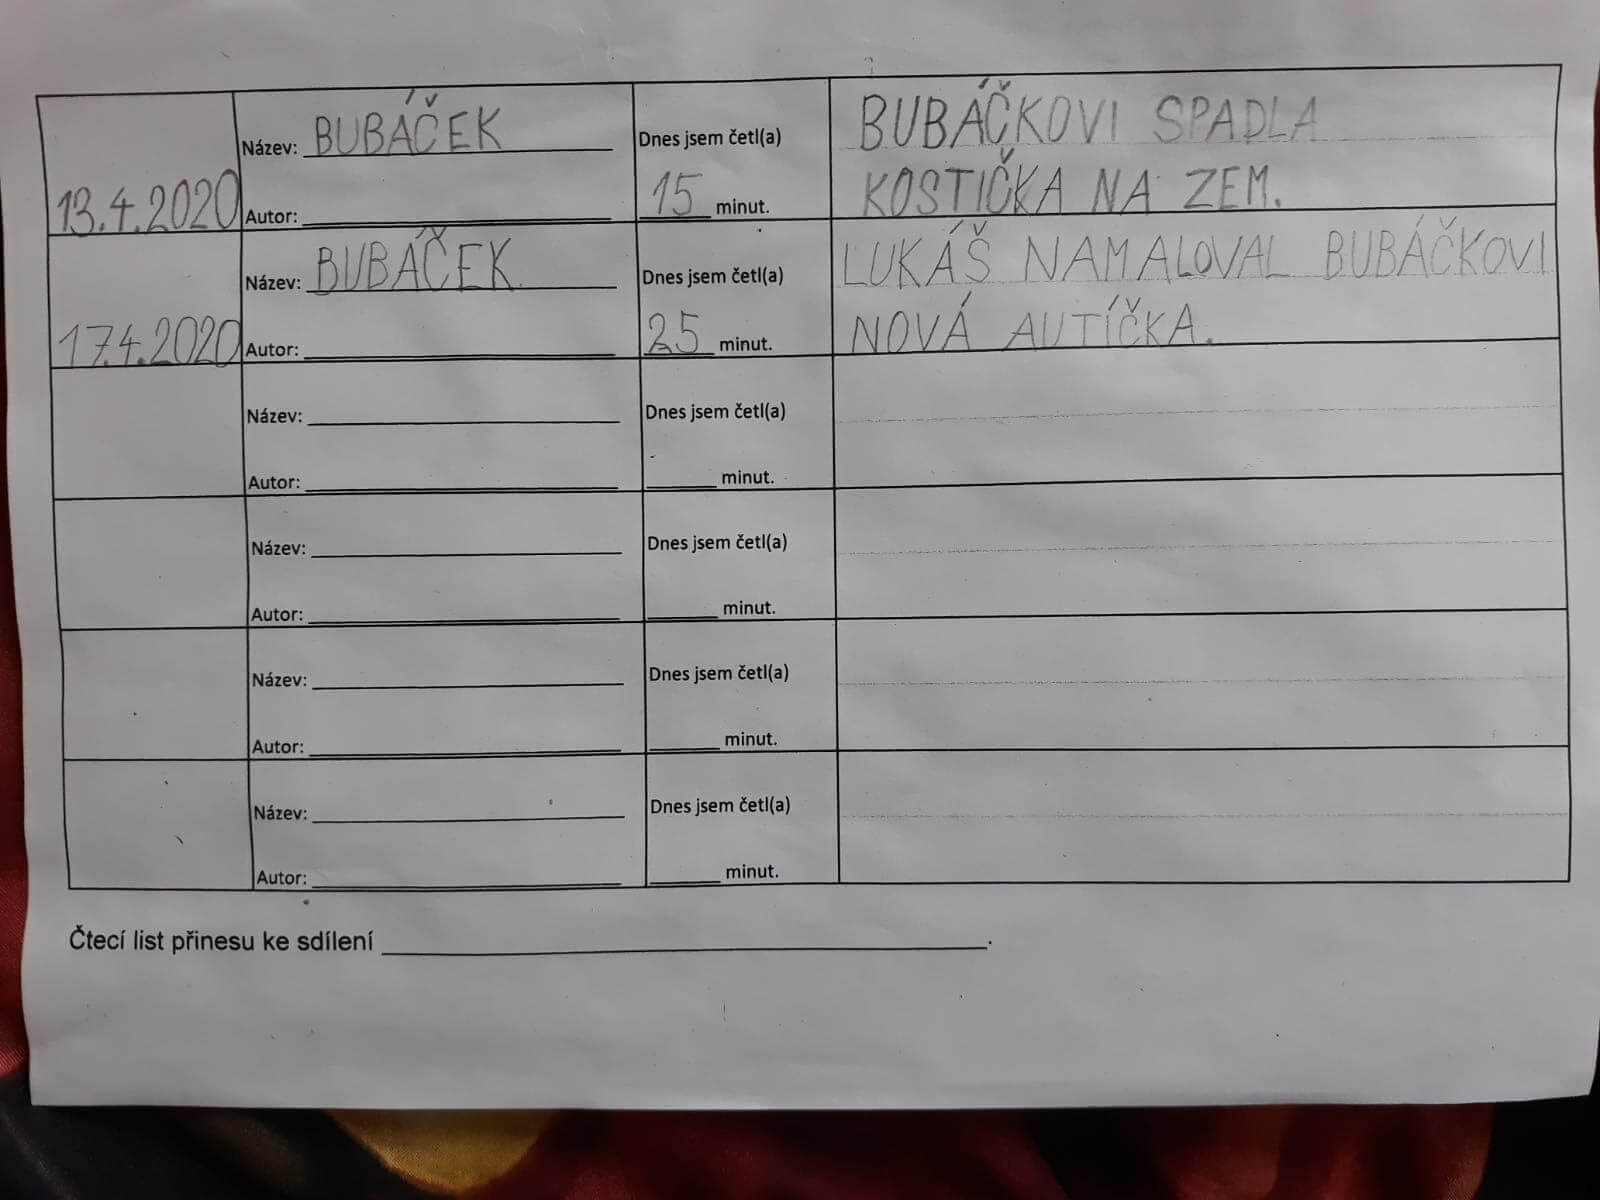 Název: BUBÁČEK
Dnes jsem četl(a)
BUBÁČKOVI SPADLA
13.4.2020
Autor:
15 minut.
KOSTIČKA NA ZEM.
Název: BUBÁČEK
Dnes jsem četl(a)
LUKÁŠ NAMALOVAL BUBÁČKOVI
17.4.2020
Autor:
25 minut.
NOVÁ AUTÍČKA.
Název:
Dnes jsem četl(a)
Autor:
minut.
Název:
Dnes jsem četl(a)
Autor:
minut.
Název:
Dnes jsem četl(a)
Autor:
minut.
Název:
Dnes jsem četl(a)
Autor:
minut.
Čtecí list přinesu ke sdílení .